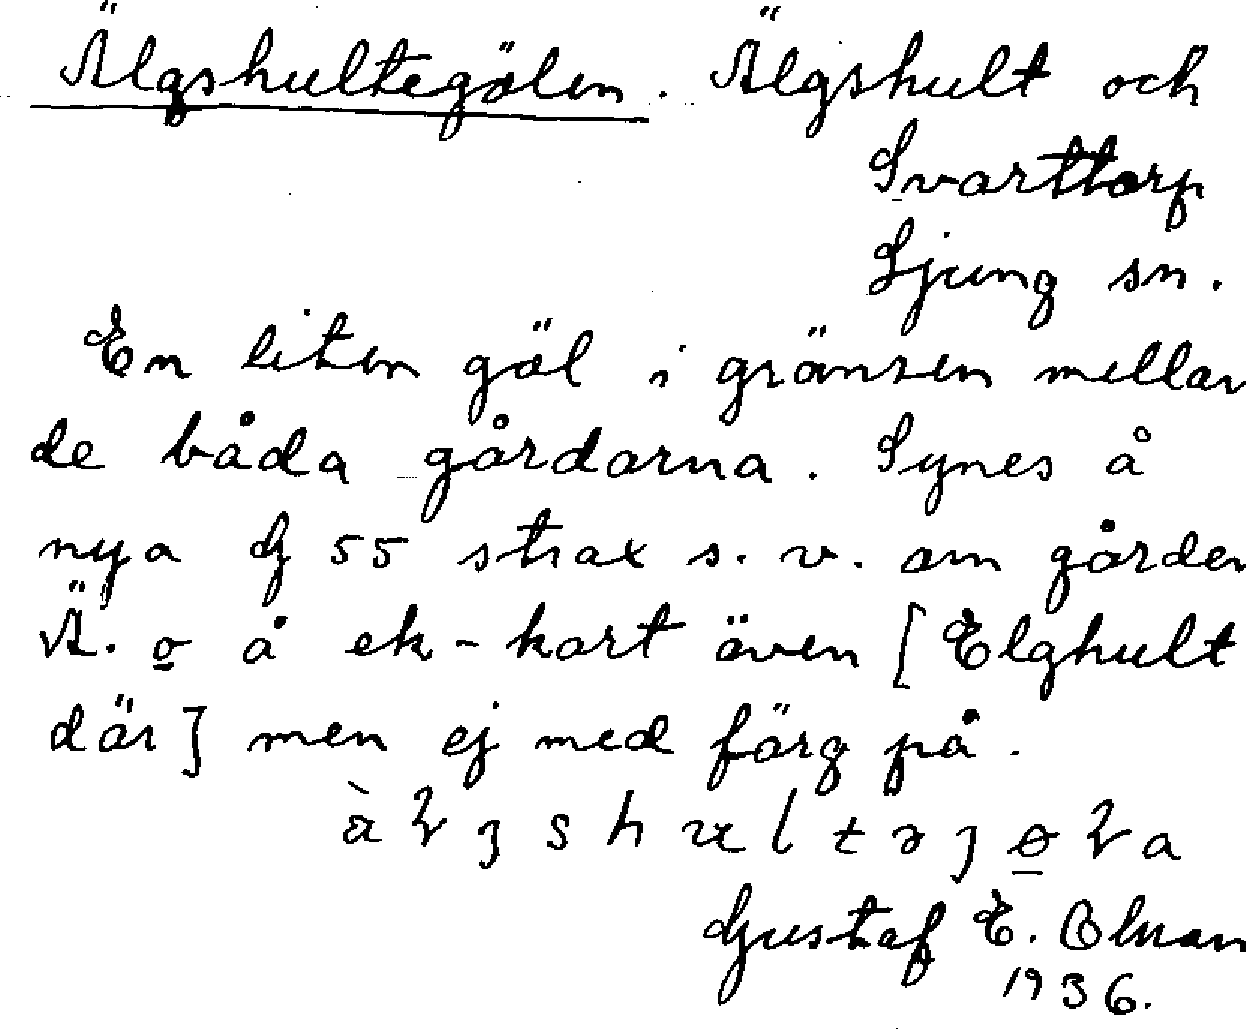 Älgshultegölen. Älgshult och
Svarttorp
Ljung sn.
En liten göl i gränsen mellan
de båda gårdarna. Synes å
nya G 55 strax s. v. om gården
Ä. o å ek-kart även [Elghult
där] men ej med färg på.
Gustaf E. Olman
1936.